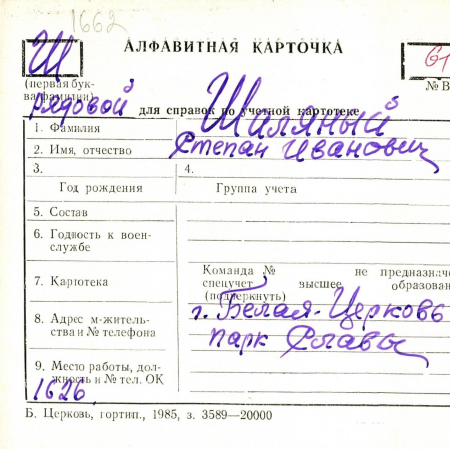 1662
Щ
АЛФАВИТНАЯ КАРТОЧКА
61
(первая бук-
ва фамилии)
№ В
рядовой
для справок по учетной картотеке
1. Фамилия
Шиляный
2. Имя, отчество
Степан Иванович
3.
4.
Год рождения
Группа учета
5. Состав
6. Годность к воен-
службе
7. Картотека
Команда № не предназначе
спецучет высшее образован
(подчеркнуть)
8. Адрес м-житель-
ства и № телефона
г. Белая-Церковь
парк Славы
9. Место работы, дол-
жность и № тел. ОК
1626
Б. Церковь, гортип., 1985, з. 3589—20000